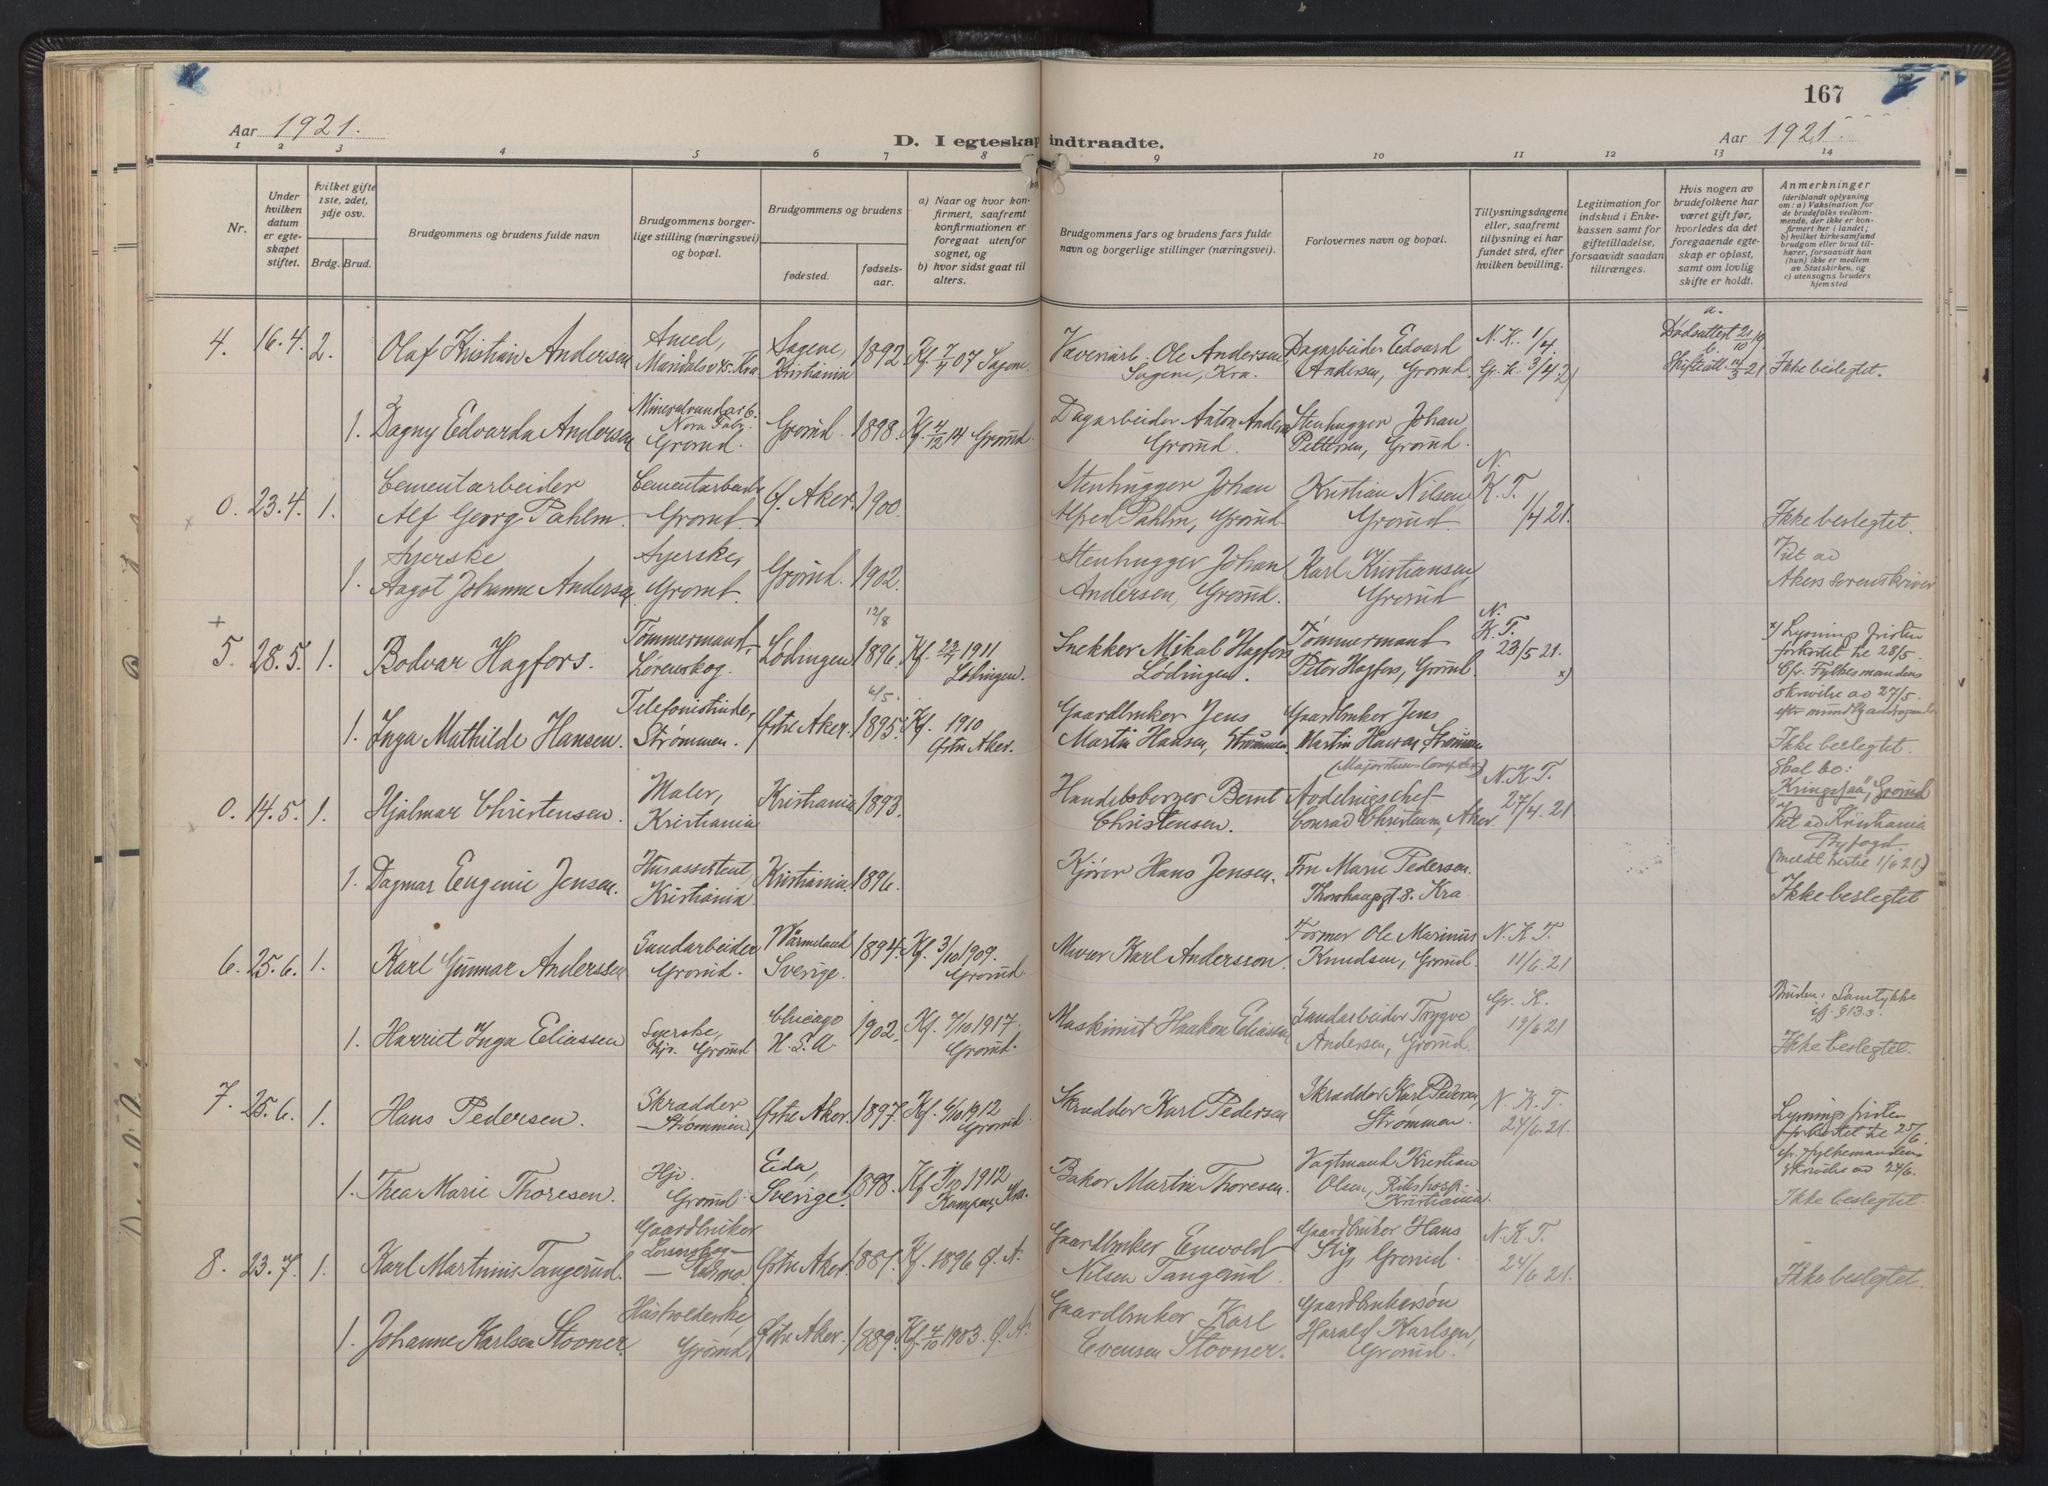 167
Aar 1921.
D. I egteskap indtraadte.
Aar 1921.
1 2 3 4 5 6 7 8 9 10 11 12 13 14
Nr.
Under hvilken datum er egteskapet stiftet.
hvilket gifte 1ste, 2det, 3dje osv.
Brdg. Brud.
Brudgommens og brudens fulde navn
Brudgommens borgerlige stilling (næringsvei) og bopæl.
Brudgommens og brudens
fødested.
fødselsaar.
a) Naar og hvor konfirmert, saafremt konfirmationen er foregaat utenfor sognet, og
b) hvor sidst gaat til alters.
Brudgommens fars og brudens fars fulde navn og borgerlige stillinger (næringsvei).
Forlovernes navn og bopæl.
Tillysningsdagene eller, saafremt tillysning ei har fundet sted, efter hvilken bevilling.
Legitimation for indskud i Enkekassen samt for giftetilladelse, forsaavidt saadan tiltrænges.
Hvis nogen av brudefolkene har været gift før, hvorledes da det foregaaende egteskap er opløst, samt om lovlig skifte er holdt.
Anmerkninger
(deriblandt oplysning om: a) Vaksination for de brudefolks vedkommende, der ikke er konfirmert her i landet; b) hvilket kirkesamfund brudgom eller brud tilhører, forsaavidt han (hun) ikke er medlem av Statskirken, og c) utensogns bruders hjemsted
4. 16.4. 2. Olaf Kristian Andersen Maridalsv 45. Kra Sagene, Kristiania 1892. Kf. 7/4 07 Sagene Væveriarb. Ole Andersen, Sagene, Kra. Dagarbeider Edvard Andersen, Grorud. N. K. 1/4. Gr. K. 3/4 21 a. Dødsattest 21/10 19 b. Skifteatt. 12/3 21 Ikke beslegtet.
1. Dagny Edvarda Andersen Mineralvandarb. Nora Fabr. Grorud. Grorud. 1898. Kf. 4/12 14 Grorud. Dagarbeider Anton Andersen Grorud. Stenhugger Johan Pettersen, Grorud.
0. 23.4. 1. Cementarbeider Alf Georg Pahlm. Cementarbeider Grorud. Ø. Aker. 1900. Stenhugger Johan Alfred Pahlm, Grorud. Kristian Nilsen, Grorud. N. K. T. 1/4 21. Ikke beslegtet.
1. Syerske Aagot Johanne Andersen Syerske, Grorud. Grorud. 1902. Stenhugger Johan Andersen, Grorud. Karl Kristiansen, Grorud Viet av Akers sorenskriver
+ 5. 28.5. 1. Bodvar Hagfors. Tømmermand, Lørenskog. Lødingen 12/8 1896. Kf. 22/7 1911 Lødingen. Snekker Mikal Hagfors Lødingen. Tømmermand Peter Hagfors, Grorud. N. K. T. 23/5 21. x) x) Lysningsfristen forkortet til 28/5. Cfr. Fylkesmandens skrivelse av 27/5.
1. Inga Mathilde Hansen. Telefonistinde, Strømmen. Østre Aker. 6/5. 1895. Kf. 1910 Østre Aker. Gaardbruker Jens Martin Hansen, Strømmen Gaardbruker Jens Martin Hansen, Strømmen Ikke beslegtet. Skal bo: Kringsjaa, Grorud
0. 14.5. 1. Hjalmar Christensen. Maler, Kristiania Kristiania 1893. Handelsborger Bernt Christensen. (Majorstuens Complex) Avdelingschef Conrad Christensen, Aker. N. K. T. 27/4. 21 Viet av Kristiania Byfogd. (meldt hertil 1/6 21)
1. Dagmar Eugenie Jensen. Husassistent, Kristiania Kristiania. 1896. Kjører Hans Jensen. Fru Marie Pedersen. Thorshaugsgt 8. Kra. Ikke beslegtet
6. 25.6. 1. Karl Gunnar Anderssen Sandarbeider Grorud. Wärmeland Sverige. 1894. Kf. 3/10 1909. Grorud. Murer Karl Andersson. Former Ole Marinus Knudsen, Grorud. N. K. T. 11/6. 21
1. Harriet Inga Eliassen Syerske, Hjv. Grorud Chicago U. S. A. 1902. Kf. 7/10 1917. Grorud. Maskinist Haakon Eliassen Sandarbeider Trygve Andersen, Grorud. Gr. K. 19/6 21 Bruden: Samtykke if. § 13 3. Ikke beslegtet.
7. 25.6. 1. Hans Pedersen. Skrædder Strømmen. Østre Aker. 1897. Kf. 6/10 1912 Grorud. Skrædder Karl Pedersen Skrædder Karl Pedersen, Strømmen. N. K. T. 24/6. 21. Lysningsfristen forkortet til 25/6. cfr. fylkemandens skrivelse av 24/6.
1. Thea Marie Thoresen. Hjv Grorud. Eda, Sverige. 1898. Kampen, Kra. Baker Martin Thoresen. Vagtmand Kristian Olsen, Rikshosp. Kristiania. Ikke beslegtet.
8. 23.7. 1. Karl Martinius Tangerud. Gaardbruker Lørenskog Østre Aker. 1881. Kf. 1896 Ø. A. Gaardbruker Enevold Nilsen Tangerud. Gaardbruker Hans Stig, Grorud. N. K. T. 24/6 21. Ikke beslegtet.
1. Johanne Karlsen Stovner. Husholderske, Grorud Østre Aker. 1889. Kf. 4/10 1903. Ø. A. Gaardbruker Karl Evensen Stovner. Gaardbrukersøn Harald Karlsen, Grorud.